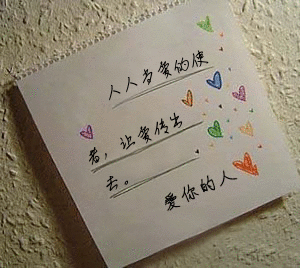 人人为爱的使
者，让爱传出
去。
爱你的人